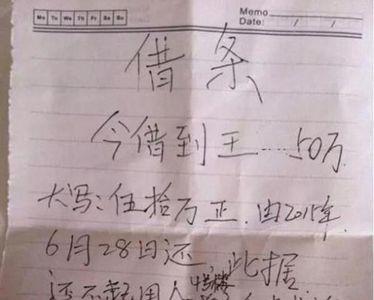 Mo Tu We Th Fr Sa Su
Memo
Date: / /
借条
今借到王……50万
大写:伍拾万正.由2015年
6月28日还,此据
还不起用人